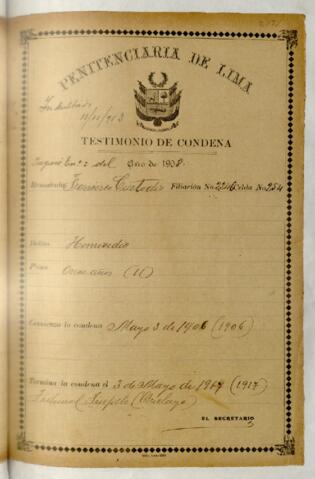 PENITENCIARIA DE LIMA
TESTIMONIO DE CONDENA
Ingresó Enº 2 del Año de 1908.
Rematado Francisco Custodio Filiación No. 2246 Celda No. 254
Delito Homicidio
Pena Once años (11)
Comienza la condena Mayo 3 de 1906 (1906)
Termina la condena el 3 de Mayo de 1917 (1917)
Tribunal
EL SECRETARIO